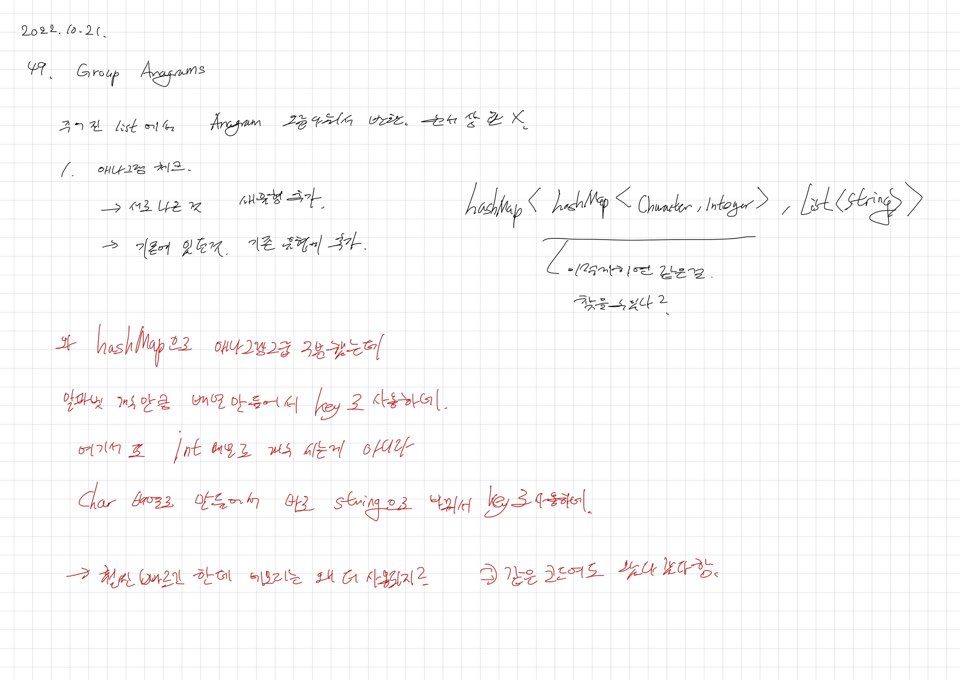 2022.10.21.
49. Group Anagrams
주어진 list에서 Anagram 그룹지어서 반환. 순서 상관 X.
1. 애나그램 체크.
→ 서로 다른 것 새유형 추가.
→ 기존에 있는것. 기존 유형에 추가.
hashMap< hashMap< Character, Integer>, List<String>>
이렇게하면 같은걸
찾을수있나?
와 hashMap으로 애나그램그룹 구분했는데
알파벳 개수만큼 배열만들어서 key로 사용하네.
여기서 또 int 배열로 개수 세는게 아니라
char 배열로 만들어서 바로 string으로 바꿔서 key로 사용하네.
→ 훨씬 빠르긴 한데 메모리는 왜 더 사용할지?
⇒ 같은 코드여도 왔다 갔다함.